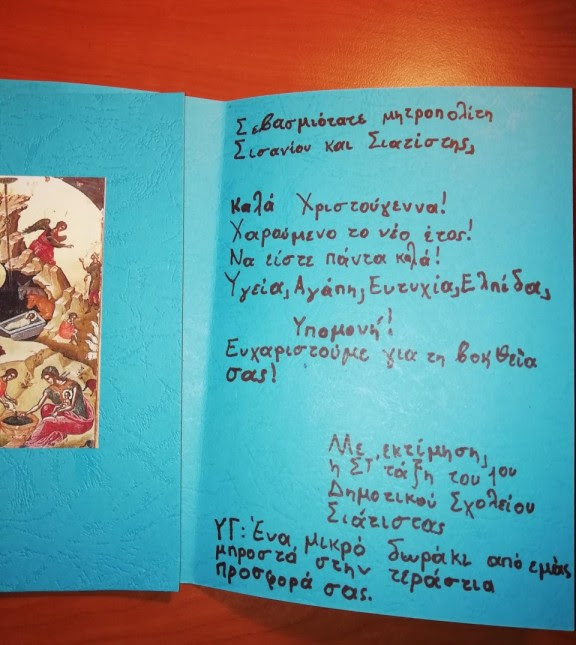 Σεβασμιότατε μητροπολίτη
Σισανίου και Σιατίστης,
Καλά Χριστούγεννα!
Χαρούμενο το νέο έτος!
Να είστε πάντα καλά!
Υγεία, Αγάπη, Ευτυχία, Ελπίδα,
Υπομονή!
Ευχαριστούμε για τη βοηθεία
σας!
Με εκτίμηση,
η ΣΤ' τάξη του 1ου
Δημοτικού Σχολείου
Σιάτιστας
ΥΓ: Ένα μικρό δωράκι από εμάς
μπροστά στην τεράστια
προσφορά σας.